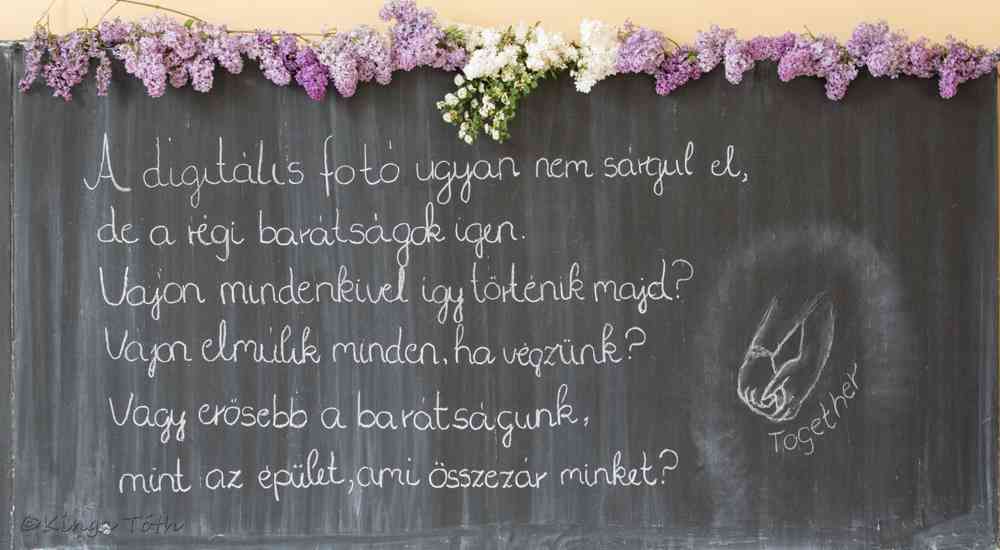 A digitális fotó ugyan nem sárgul el,
de a régi barátságok igen.
Vajon mindenkivel így történik majd?
Vajon elmúlik minden, ha végzünk?
Vagy erősebb a barátságunk,
mint az épület, ami összezár minket?
Together
©Kinga Tóth